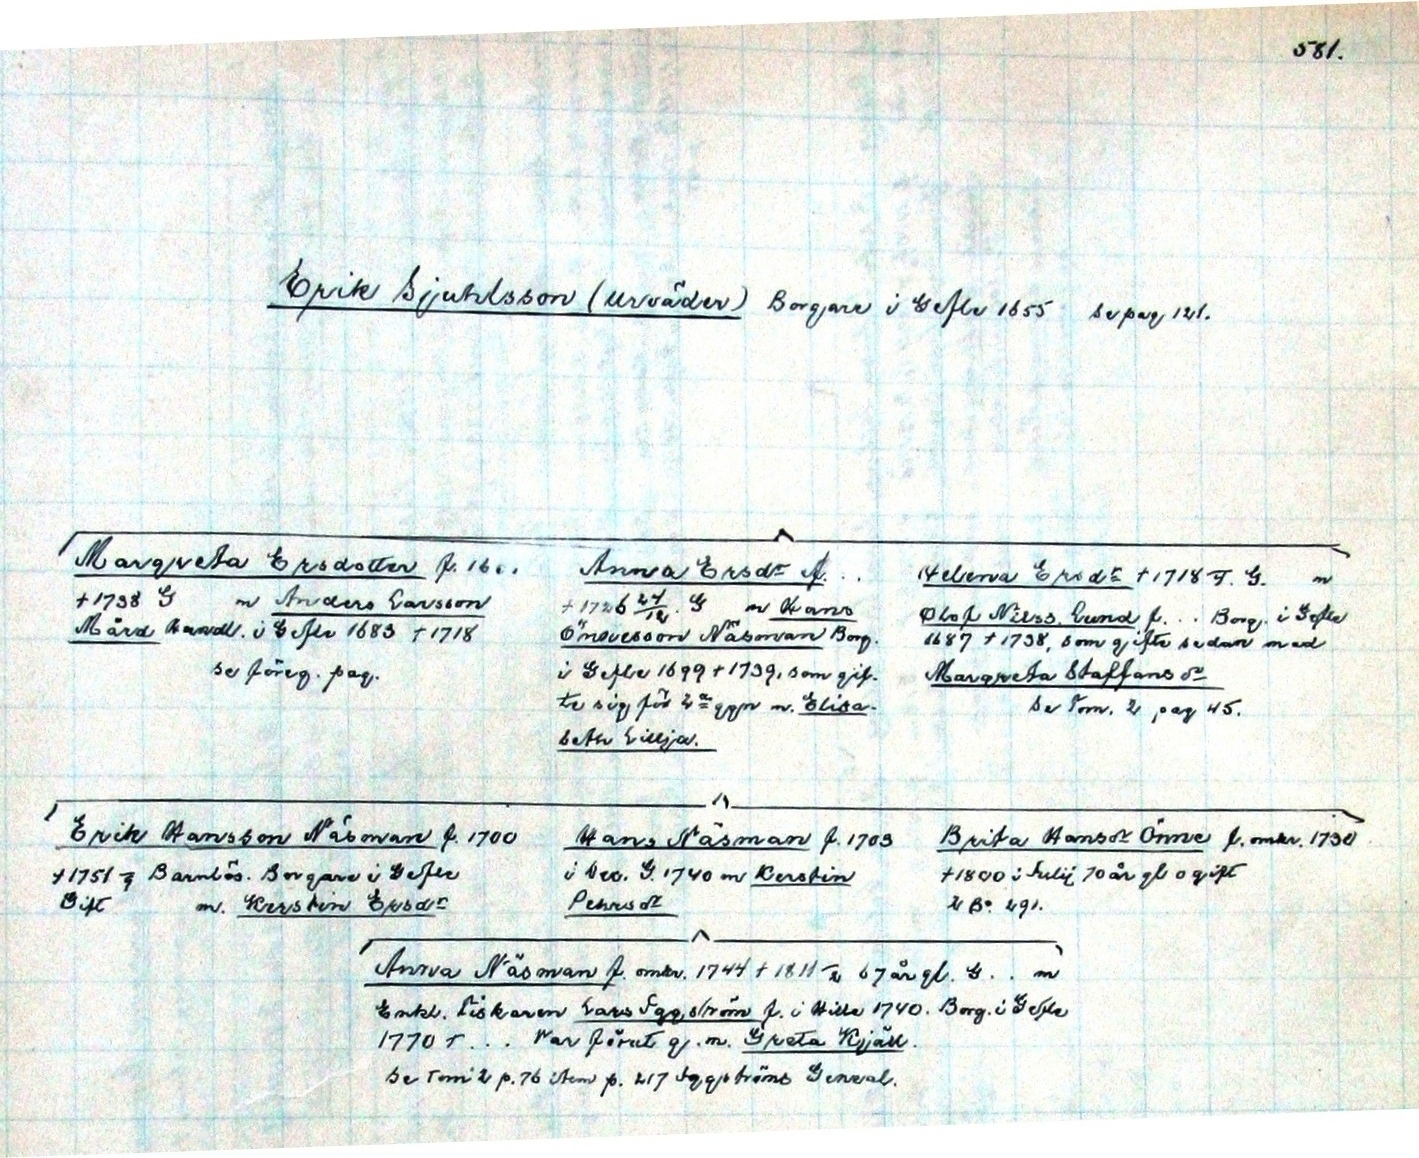 581.
Erik Sjuhlsson (Urväder) Borgare i Gefle 1655 se pag 121.
Margreta Ersdotter f. 16...
+1738 G m Anders Larsson
Mård Handl. i Gefle 1683 +1718
se föreg. pag.
Anna Ersdr f. . .
+1726 27/12. G m Hans
Önnesson Näsman Borg.
i Gefle 1699 +1739, som gif-
te sig för 2a ggn m. Elisa-
beth Lillja.
Helena Ersdr +1718 G. m
Olof Nilss. Lund f. . . Borg. i Gefle
1687 +1738, som gifte sedan med
Margreta Staffansdr
Se Tom. 2 pag 45.
Erik Hansson Näsman f. 1700
+1751 Barnlös. Borgare i Gefle
Gift m. Kerstin Ersdr
Hans Näsman f. 1703
i Dec. G. 1740 m Kerstin
Pehrsdr
Brita Hansdr Önne f. omkr. 1730
+1800 i Julij 70 år gl ogift
2 Bo. 291.
Anna Näsman f. omkr. 1744 +1811 67 år gl. G. . m
Enkl. Fiskaren Lars Iggström f. i Hille 1740. Borg. i Gefle
1770 + . . . Var förut gj. m. Greta Kjäll.
Se Tom 2 p. 76 item p. 217 Iggströms Geneal.